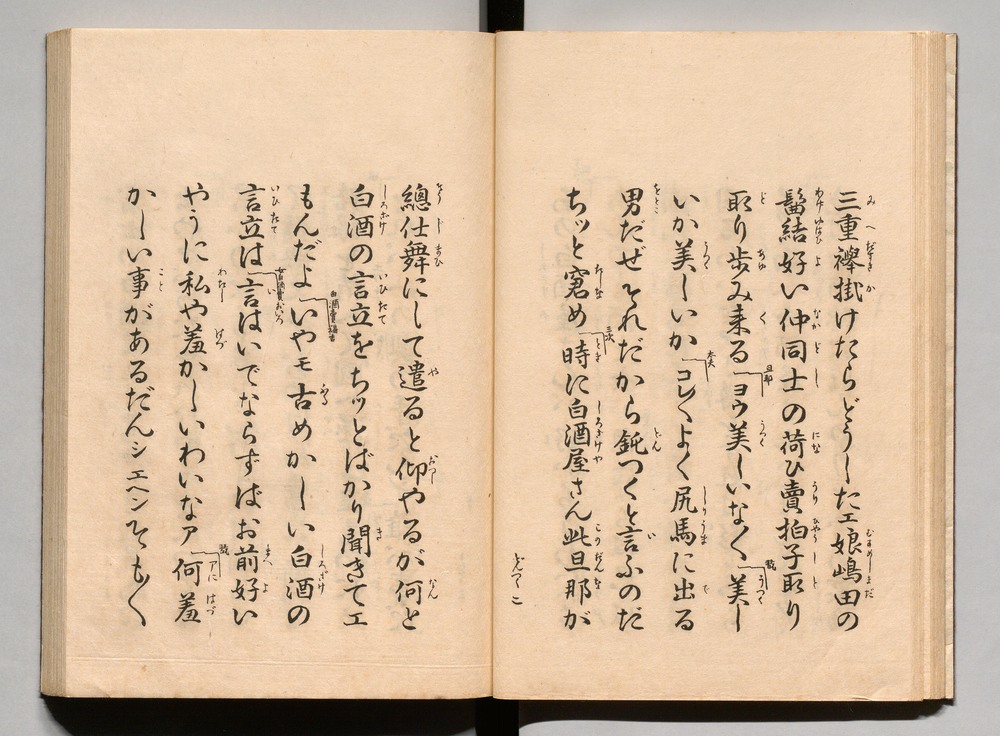 三重襷掛けたらどうしたエ娘嶋田の
髷結好い仲同士の荷ひ賣拍子取り
取り歩み来る「ヨウ美しいな〱「美し
いか美しいか「コレ〱よく尻馬に出る
男だぜそれだから鈍つくと言ふのだ
ちッと窘め「時に白酒屋さん此旦那が
どんつく 二
總仕舞にして遣ると仰やるが何と
白酒の言立をちッとばかり聞きてエ
もんだよ「いやモ古めかしい白酒の
言立は「言はいでならずばお前好い
やうに私や羞かしいわいなア「何羞
かしい事があるだんシエヘンそも〱